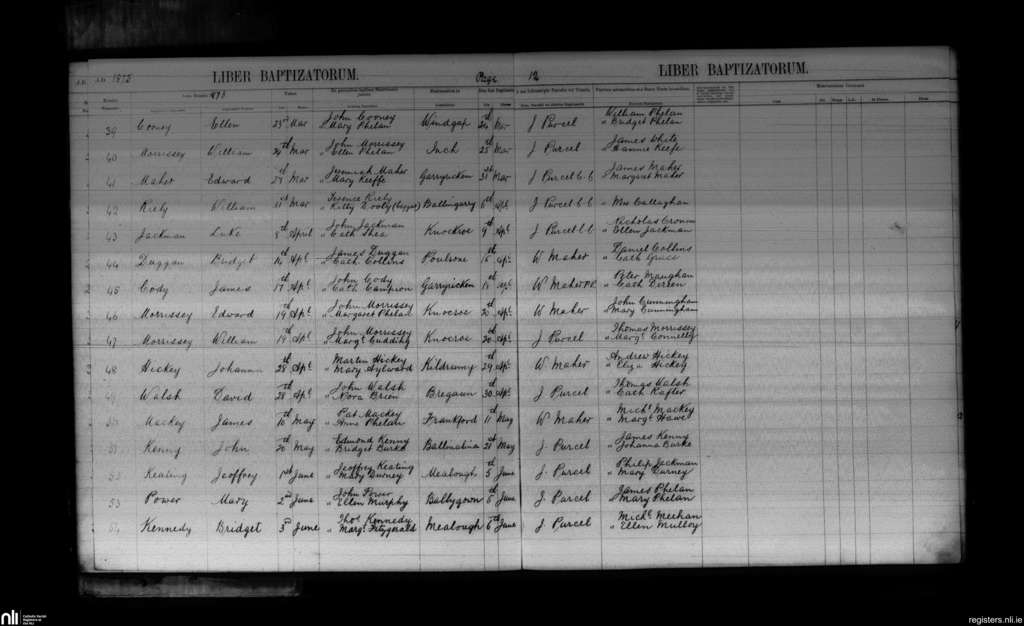 A.D. 1895 LIBER BAPTIZATORUM. Page 12 LIBER BAPTIZATORUM.
39 Cooney Ellen 23rd Mar John Cooney Windgap 24th Mar J Purcel William Phelan
" Mary Phelan " Bridget Phelan
40 Morrissey William 24th Mar John Morrissey Inch 25th Mar J Purcel James White
" Ellen Phelan " Hannie Keefe
41 Maher Edward 29th Mar Jeremiah Maher Garryricken 31st Mar J Purcel C.C James Maher
" Mary Keeffe " Margret Maher
42 Riely William 11th Mar Terence Riely Ballingarry 6th Apl J Purcel C C " Mrs Callaghan
" Kitty Dooly
43 Jackman Luke 8th April John Jackman Knockroe 9th Apl J Purcel C.C Nicholas Cronin
" Cath Shea " Ellen Jackman
44 Duggan Bridget 14th Apl James Duggan Poulrone 15th Apl W Maher Daniel Collins
" Cath Collins " Cath Grace
45 Cody James 17th Apl John Cody Garryricken 18th Apl W Maher P.P. Peter Maughan
" Cath Campion " Cath
46 Morrissey Edward 19th Apl John Morrissey Knocroe 20th Apl W Maher John Cunningham
" Margaret Phelan " Mary Cunningham
47 Morrissey William 19th Apl John Morrissey Knocroe 20th Apl J Purcel Thomas Morrissey
" Margt Cuddihy " Margt Connelly
48 Hickey Johanna 28th Apl Martin Hickey Kildrummy 29th Apl W Maher Andrew Hickey
" Mary Aylward " Eliza Hickey
49 Walsh David 28th Apl John Walsh Bregaun 30th Apl J Purcel Thomas Walsh
" Nora Brien " Cath Rafter
50 Mackey James 10th May Pat Mackey Frankford 11th May W Maher Michl Mackey
" Anne Phelan " Margt Hawe
51 Kenny John 20th May Edmond Kenny Ballinabia 21st May J Purcel James Kenny
" Bridget Burke " Johanna Burke
52 Keating Jeoffrey 1st June Jeoffrey Keating Mealough 5th June J Purcel Philip Jackman
" Mary Durney " Mary Curney
53 Power Mary 2nd June John Power Ballygown 5th June J Purcel James Phelan
" Ellen Murphy " Mary Phelan
54 Kennedy Bridget 3rd June Thos Kennedy Mealough 6th June J Purcel Michl Meehan
" Margt Fitzgerald " Ellen Mulloy
nli Catholic Parish Registers at the NLI
registers.nli.ie